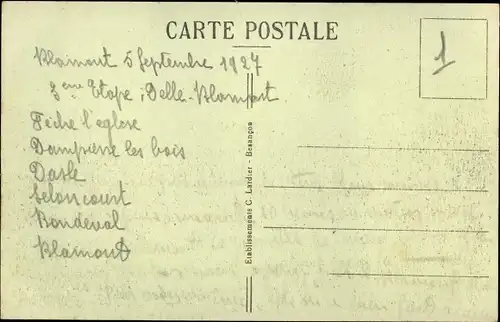 CARTE POSTALE
Blamont 5 Septembre 1927
3eme Etape, Delle-Blamont
1
Fêche l'eglise
Dampierre les bois
Dasle
Seloncourt
Bondeval
Blamont
Etablissements C. Lardier - Besançon